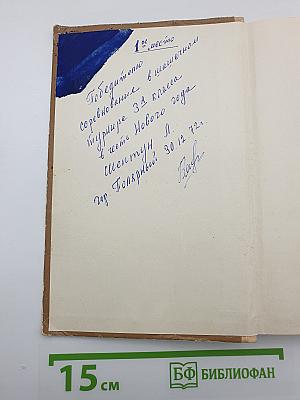 1ое место
Победителю
соревнования в шашечном
турнире 3д класса
в честь Нового года
Шентун Л.
гор. Полярный 30.12.72г.
15 см
БФ БИБЛИОФАН